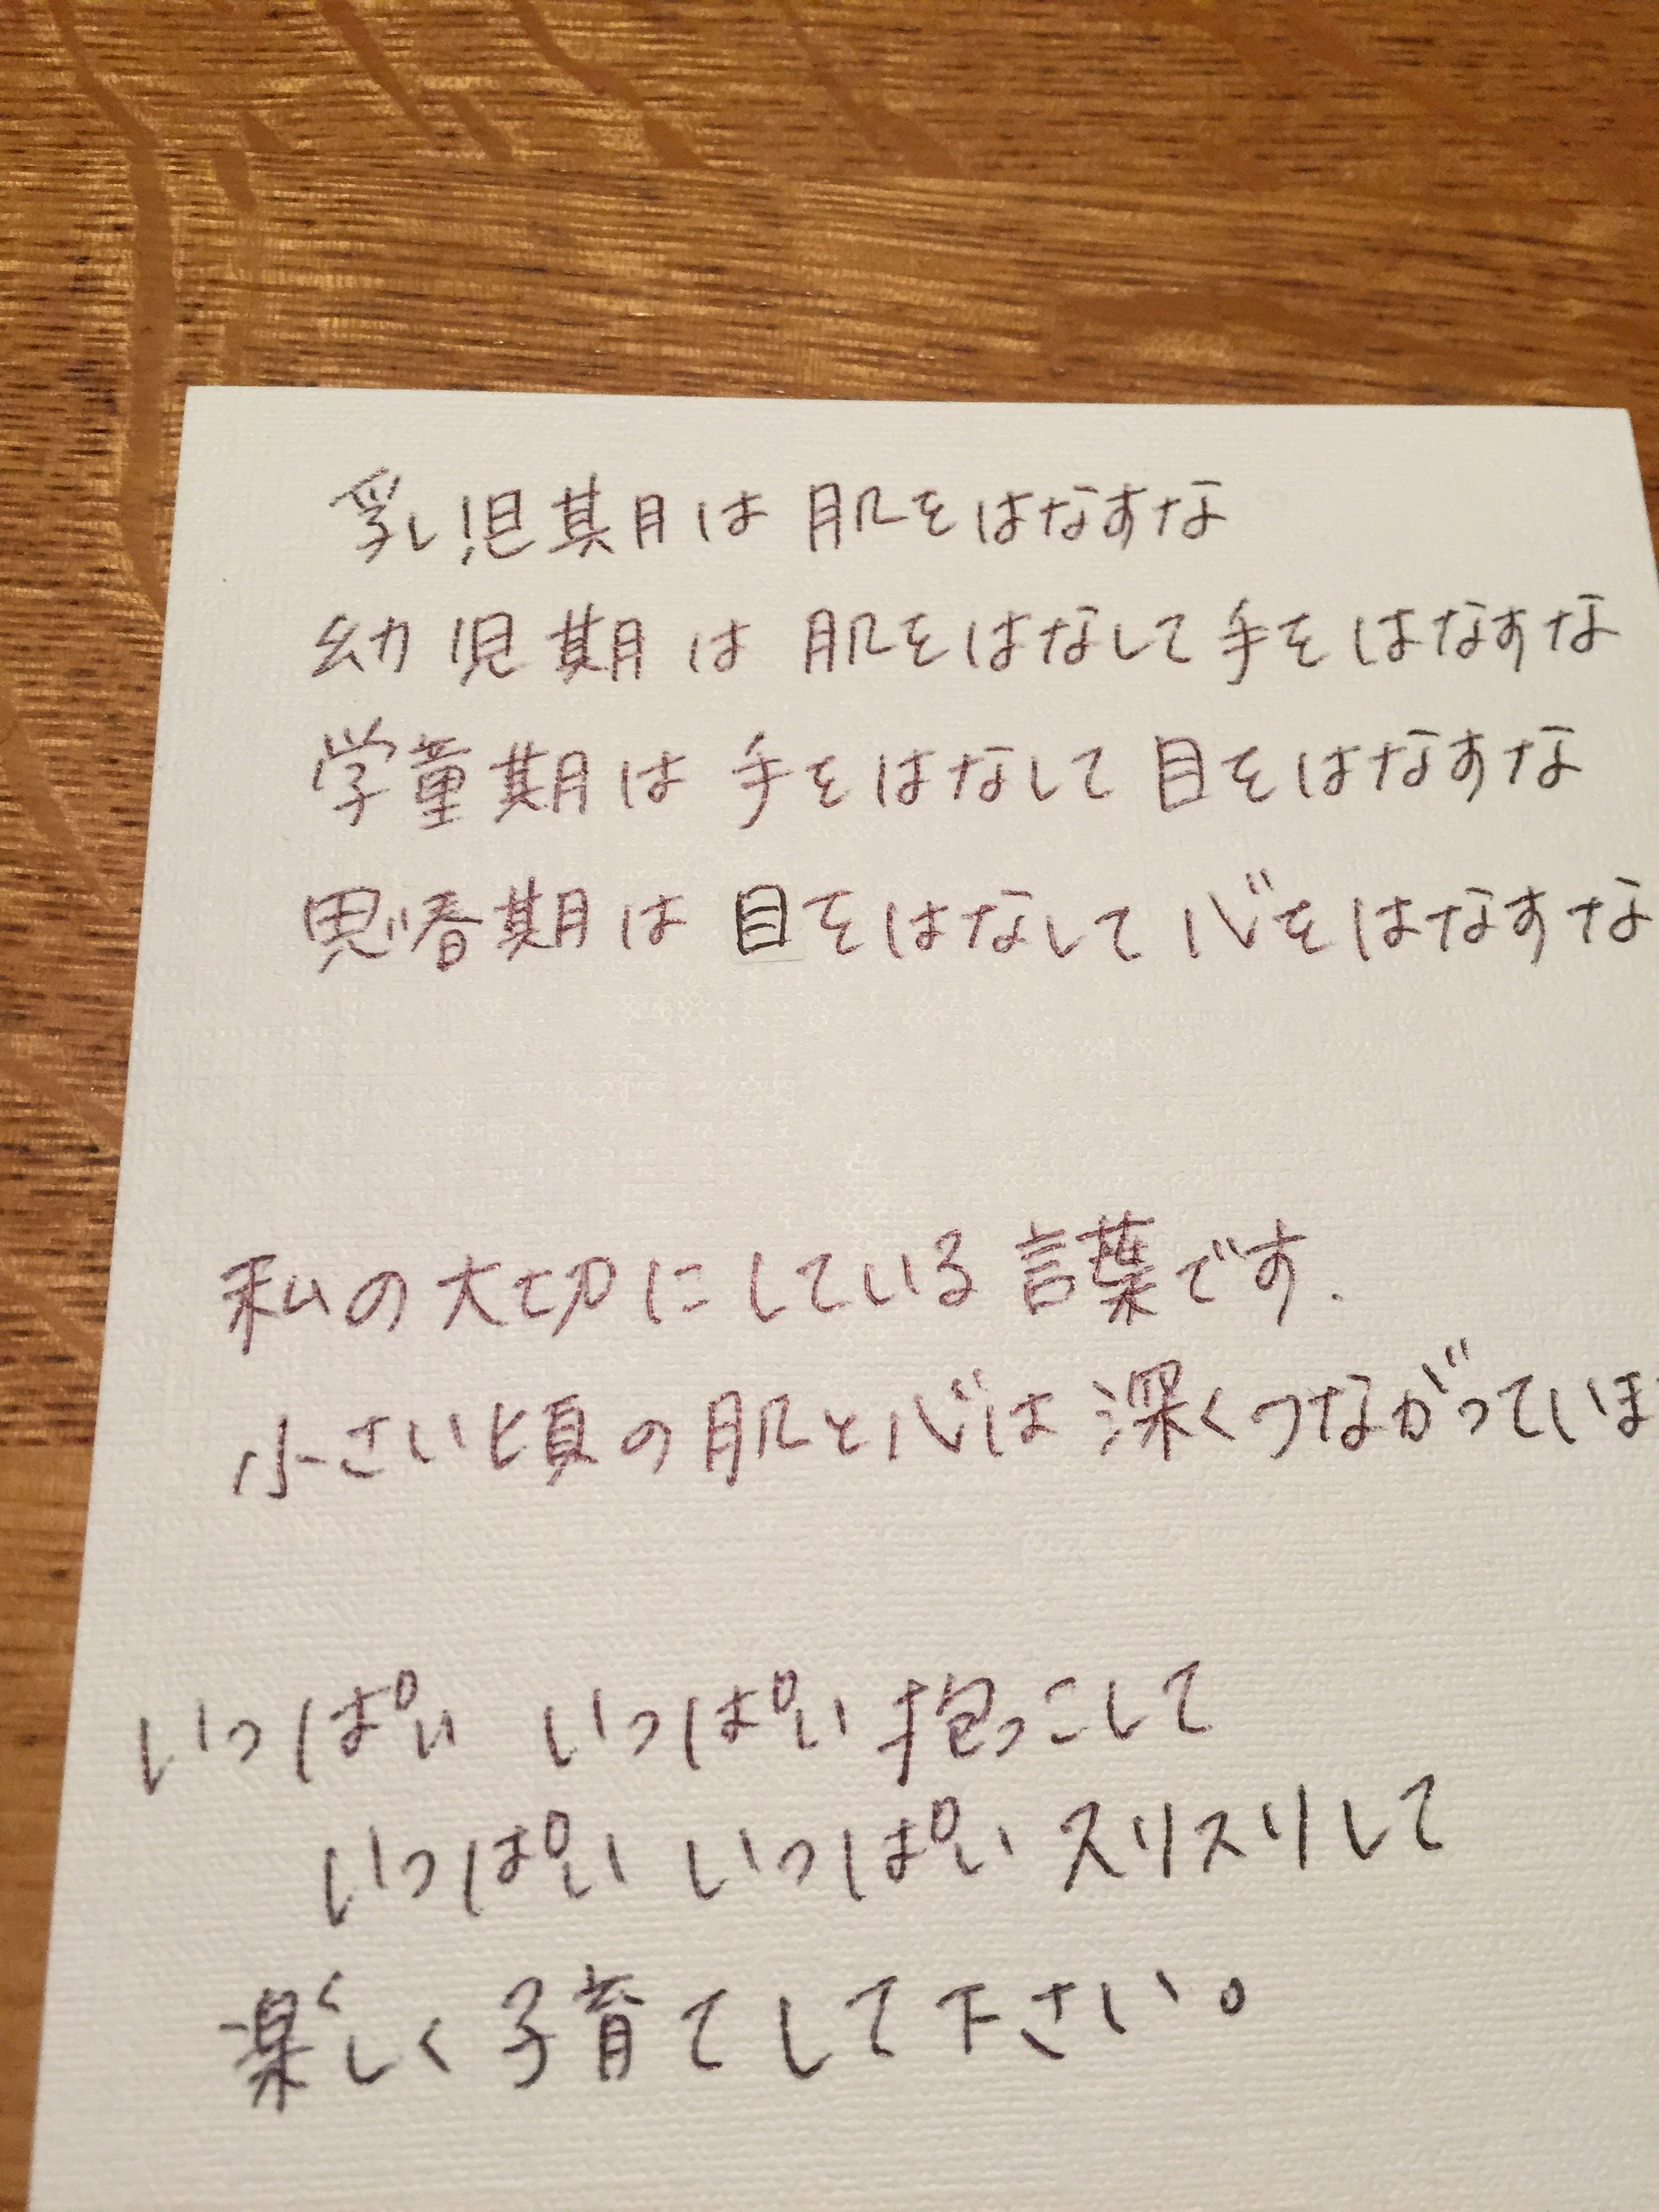 乳児期は 肌をはなすな
幼児期は 肌をはなして手をはなすな
学童期は 手をはなして 目をはなすな
思春期は 目をはなして心をはなすな
私の大切にしている言葉です.
小さい頃の肌と心は深くつながっていま
いっぱい いっぱい抱っこして
いっぱい いっぱい スリスリして
楽しく子育てして下さい。